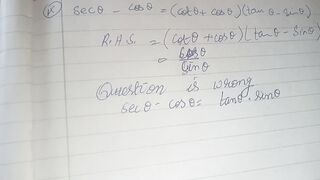 (ix) secθ - cosθ = (cotθ + cosθ)(tanθ - sinθ)
R.H.S. = (cotθ + cosθ)(tanθ - sinθ)
= cosθ
sinθ
Question is wrong
secθ - cosθ = tanθ . sinθ